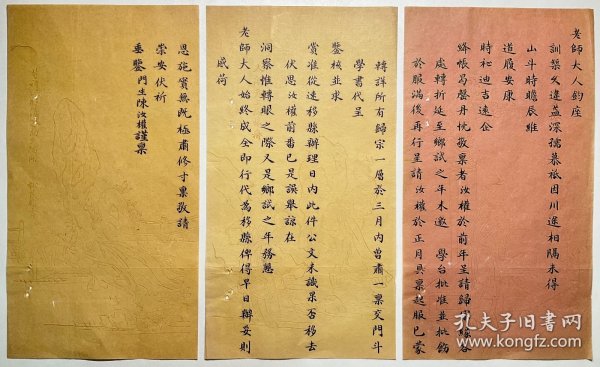 老師大人鈞座
訓築久違益深孺慕祗因川途相隔未得
山斗時瞻辰維
道履安康
時祉迪吉遠企
絳帳曷罄丹忱敬稟者汝權於前年呈請歸宗
處轉折延至鄉試之年未邀 學台批准並批飭
於服滿後再行呈請汝權於正月具稟起服已蒙
轉詳所有歸宗一層於三月內曾肅一稟交門斗
學書代呈
鑒核並求
賞准從速移縣辦理日內此件公文未識果否移去
伏思汝權前番已是誤舉諒在
洞察惟轉眼之際又是鄉試之年務懇
老師大人始終成全即行代為移縣俾得早日辦妥則
感荷
恩施實無既極肅修寸稟敬請
崇安伏祈
垂鑒門生陳汝權謹稟
孔夫子旧书网
www.kongfz.com